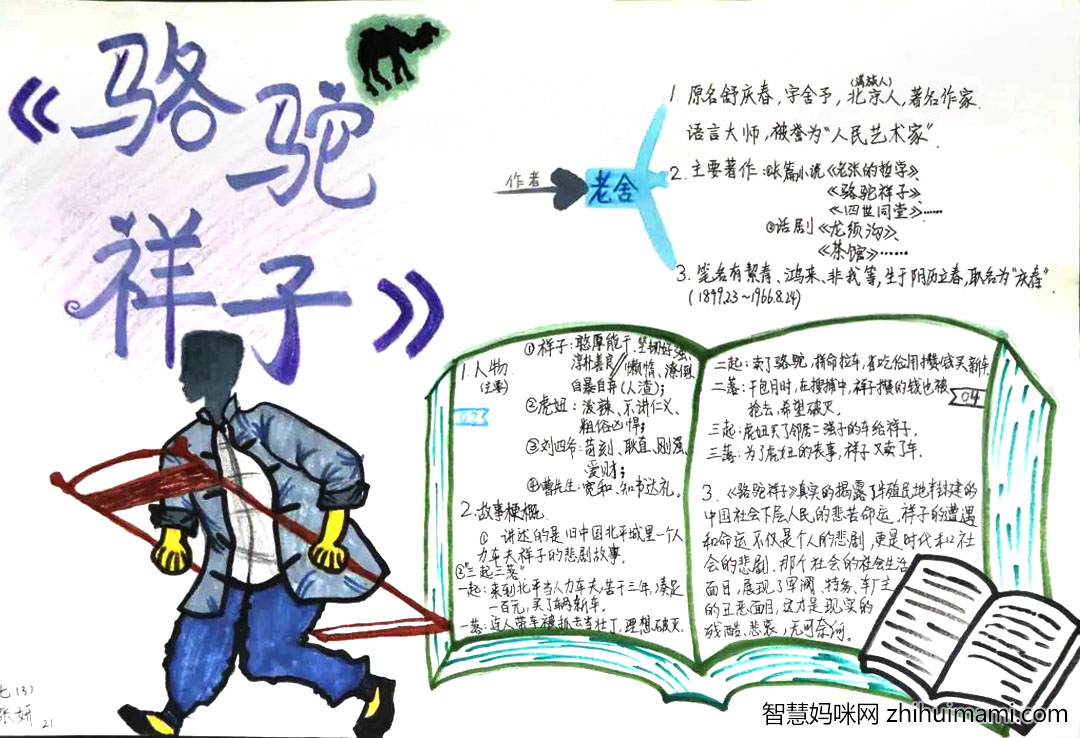 《骆驼
祥子》
作者
老舍
1. 原名舒庆春,字舍予,北京人,著名作家.
(满族人)
语言大师,被誉为“人民艺术家”.
2. 主要著作:①长篇小说《老张的哲学》、
《骆驼祥子》、
《四世同堂》……
②话剧《龙须沟》、
《茶馆》……
3. 笔名有絜青、鸿来、非我等,生于阴历立春,取名为“庆春”
(1899.2.3~1966.8.24)
1. 人物
(主要)
①祥子:憨厚能干、坚韧好强、
淳朴善良//懒惰、潦倒、
自暴自弃(人渣);
②虎妞:泼辣、不讲仁义、
粗俗凶悍;
③刘四爷:苛刻、耿直、刚强、
爱财;
④曹先生:宽和、知书达礼。
03
2. 故事梗概
① 讲述的是旧中国北平城里一个人
力车夫祥子的悲剧故事。
②“三起三落”
一起:来到北平当人力车夫,苦干三年,凑足
一百元,买了辆新车。
一落:连人带车被抓去当壮丁,理想破灭.
二起:卖了骆驼,拼命拉车,省吃俭用攒钱买新车.
二落:干包月时,在搜捕中,祥子攒的钱也被
抢去,希望破灭。
04
三起:虎妞买了邻居二强子的车给祥子.
三落:为了虎妞的丧事,祥子又卖了车。
3. 《骆驼祥子》真实的揭露了半殖民地半封建的
中国社会下层人民的悲苦命运,祥子的遭遇
和命运不仅是个人的悲剧,更是时代和社
会的悲剧.那个社会的社会生活
面目,展现了军阀、特务、车厂主
的丑恶面目,这才是现实的
残酷、悲哀,无可奈何。
七(3)
张妍 21
智慧妈咪网 zhihuimami.com